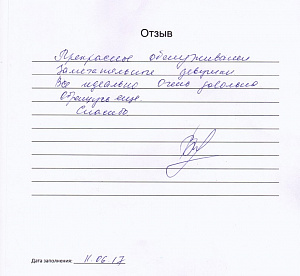 Отзыв
Прекрасное обслуживание
Замечательные девушки
Все идеально Очень довольна
Обращусь еще.
Спасибо.
Дата заполнения: 11.06.17